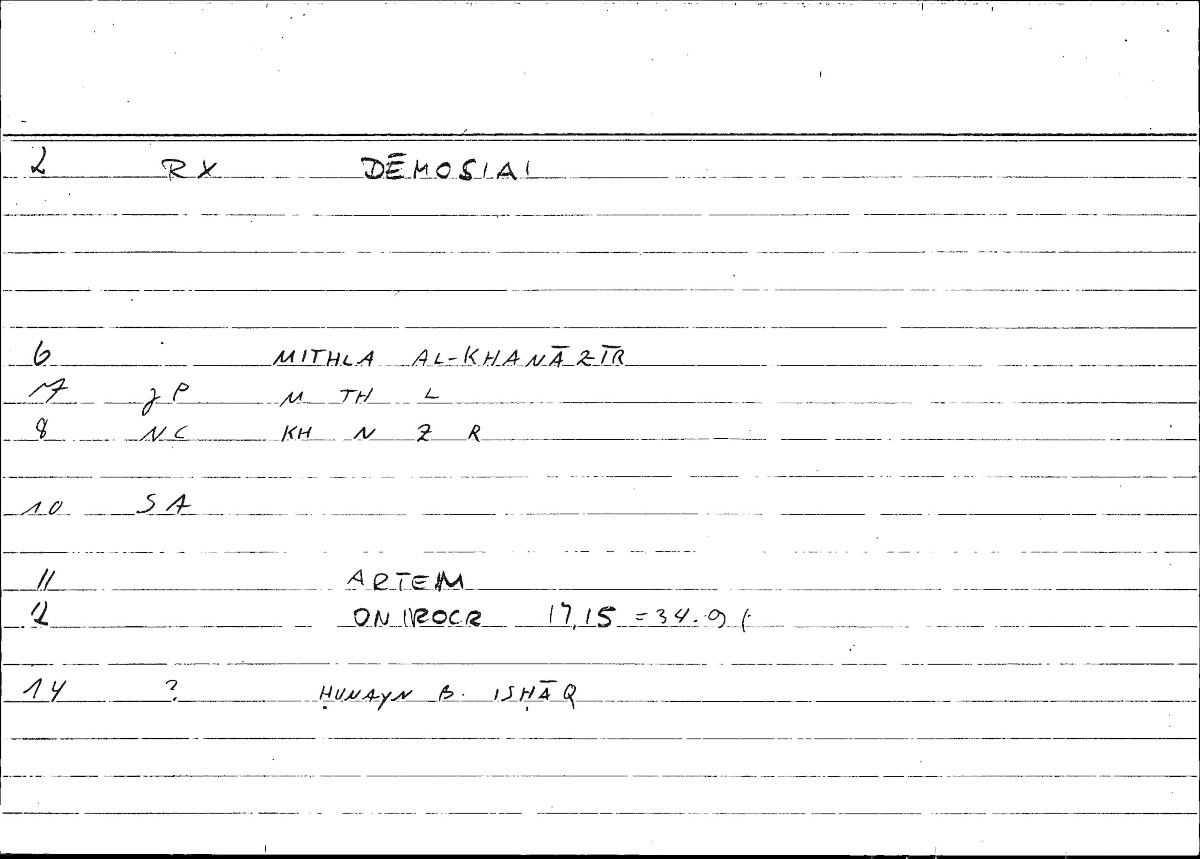 2 RX DĒMOSIAI
6 MITHLA AL-KHANĀZĪR
7 JP M TH L
8 NC KH N Z R
10 SA
11 ARTEM
12 ONIROCR 17,15 = 34.9 f
14 ? ḤUNAYN B. ISḤĀQ